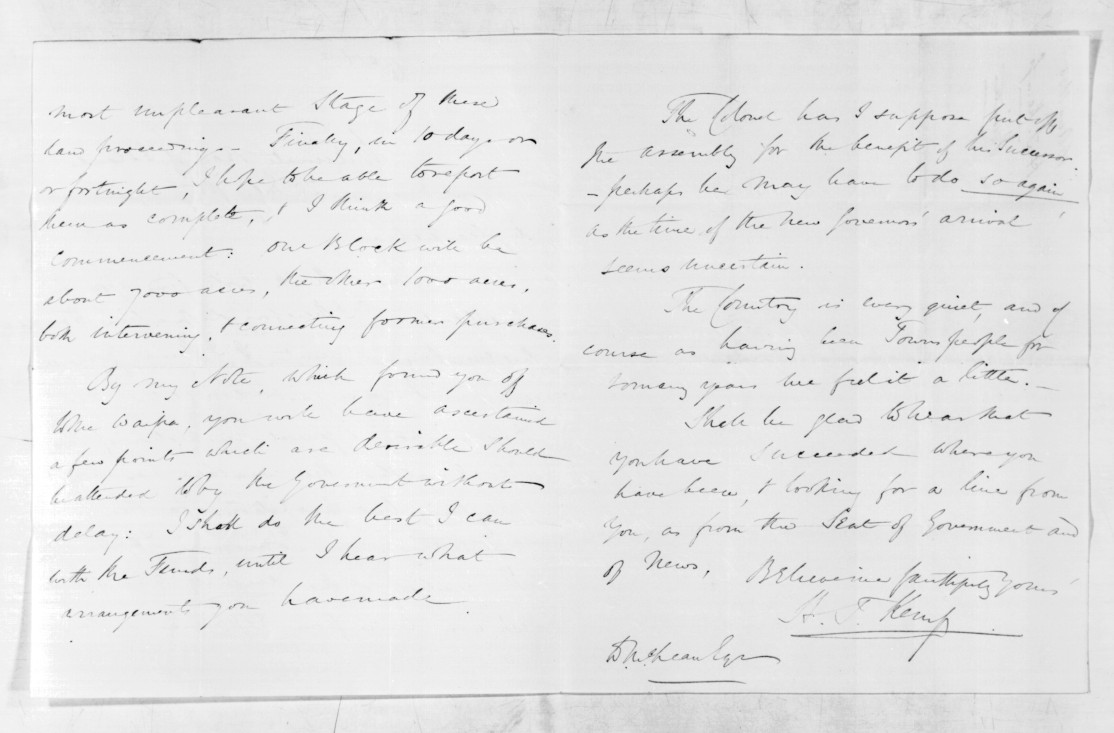 most unpleasant stage of these
land proceedings - Finally, in 10 days or
or fortnight, I hope to be able to report
them as complete, & I think a good
commencement: one Block will be
about 7000 acres, the other 1000 acres,
both intervening, & connecting former purchases.
By my Note, which found you off
the Waipa, you will have ascertained
a few points which are desirable should
be attended to by the Government without
delay: I shall do the best I can
with the Funds, until I hear what
arrangements you have made.
The Colonel has I suppose put off
the assembly for the benefit of his Successor
- perhaps he may have to do so again,
as the time of the new Governors' arrival
seems uncertain.
The Country is very quiet, and of
course as having been Towns people for
so many years we feel it a little. -
Shall be glad to hear that
you have succeeded where you
have been, & looking for a line from
you, as from the Seat of Government and
of News,
Believe me faithfully Yours
H. T. Kemp
D. McLean Esqr